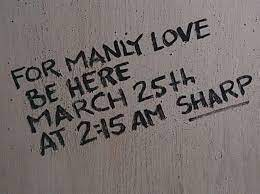 FOR MANLY LOVE
BE HERE
MARCH 25th
AT 2:15 AM SHARP